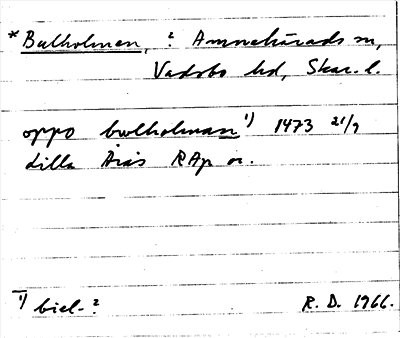 *Bulholmen, ? Amnehärads sn,
Vadsbo hd, Skar. l.
oppo bwlholman 1) 1473 21/9
Lilla Årås RAp or.
1) biel-? R. D. 1966.